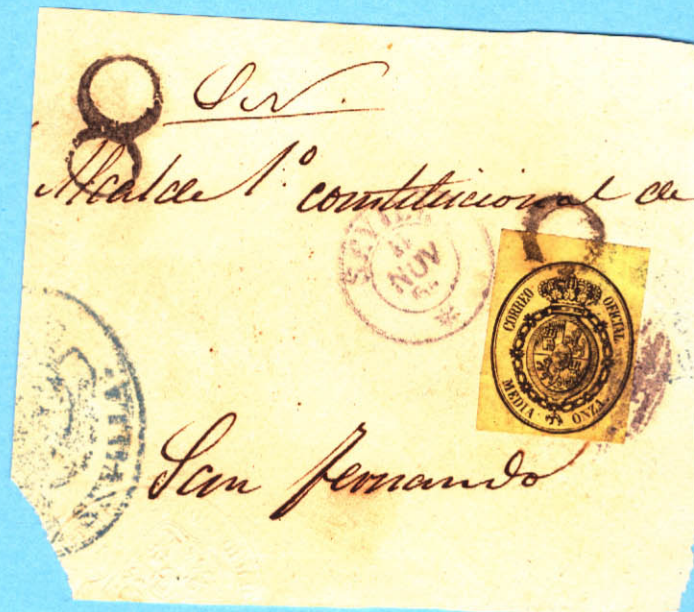 Sr.
Alcalde 1º constitucional de
NOV
CORREO OFICIAL
MEDIA ONZA
San Fernando
SEVILLA